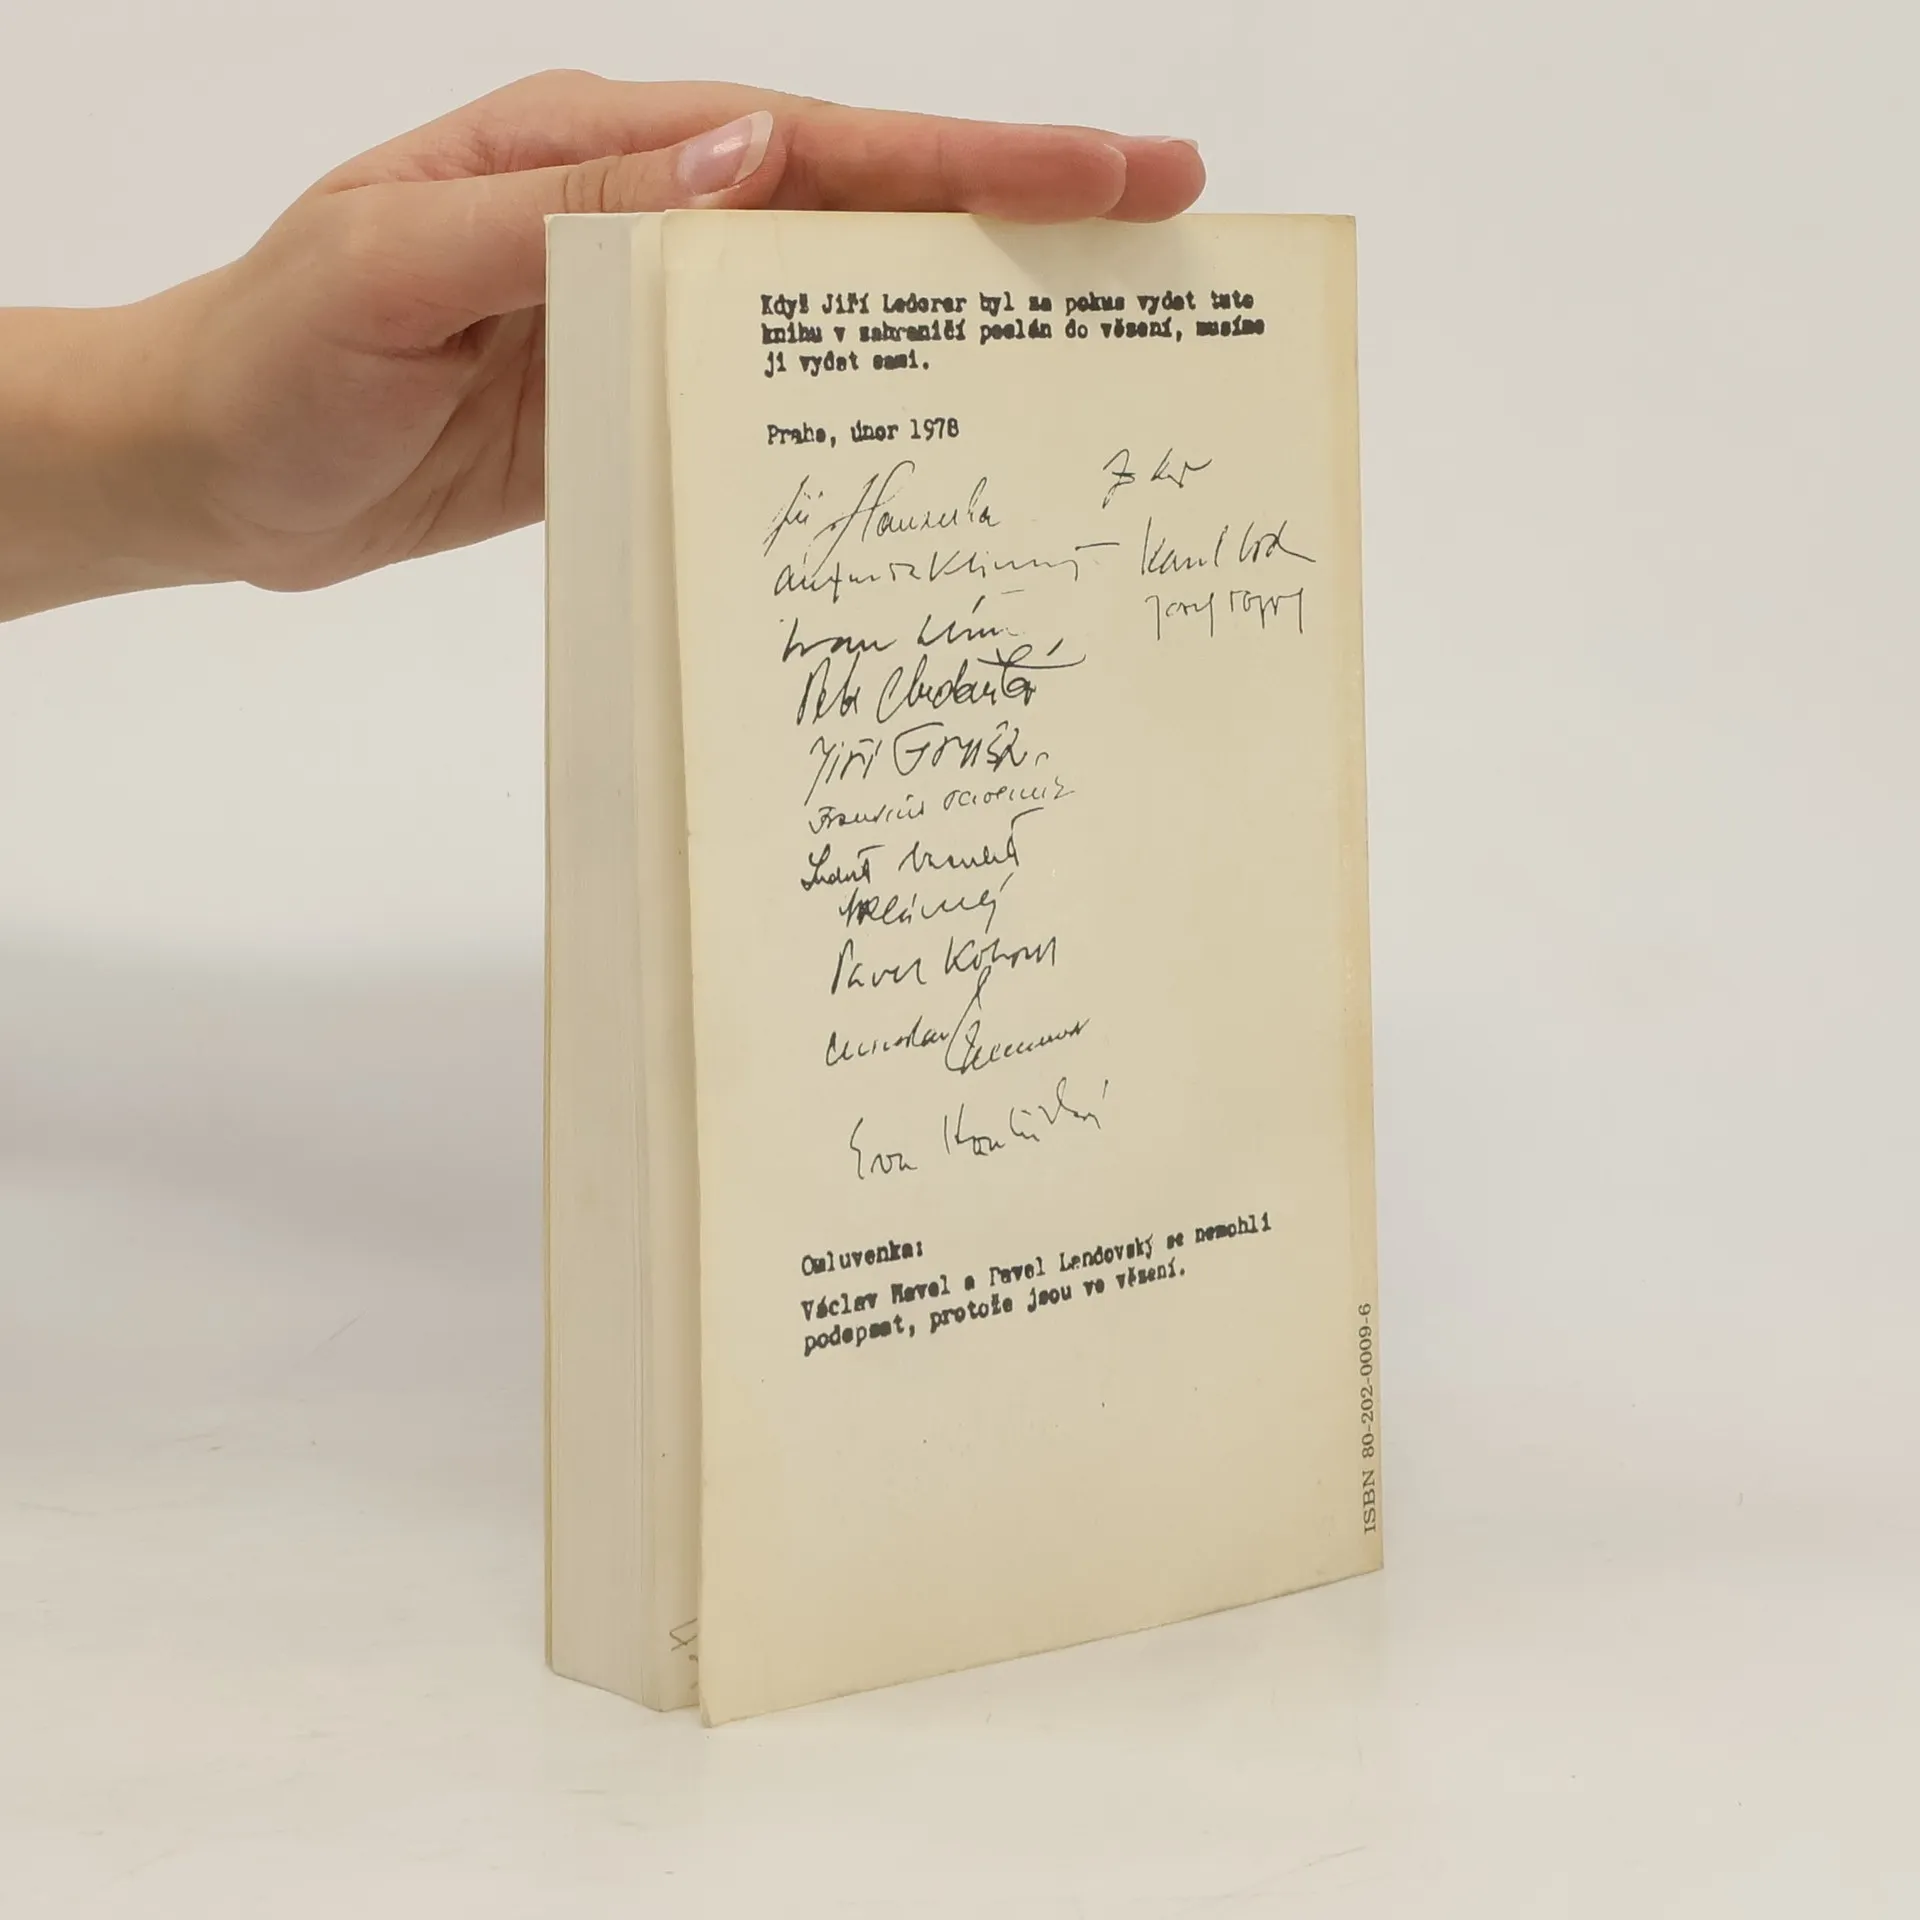 Když Jiří Lederer byl za pokus vydat tuto
knihu v zahraničí poslán do vězení, musíme
ji vydat sami.
Praha, únor 1978
Jiří Hanzelka
Ivan Klíma
Petr Chudožilov
Jiří Gruša
František Pavlíček
Ludvík Vaculík
Pavel Kohout
Eva Kantůrková
Karel
Josef Topol
Omluvenka:
Václav Havel a Pavel Landovský se nemohli
podepsat, protože jsou ve vězení.
ISBN 80-202-0009-6